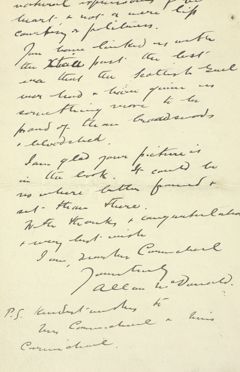 natural expression of the
heart, & not a mere lip
courtesy & politeness.
You have linked us with
the past, the best
era that the Scottish Gael
ever had & have given us
something more to be
proud of than broadswords
& bloodshed.
I am glad your picture is
in the book. It could be
nowhere better framed &
set than there.
With thanks & congratulations
& very best wish
I am, Carmichael
Yours truly
Allan McDonald.
P.S. Kindest wishes to
Mrs Carmichael & Miss
Carmichael.